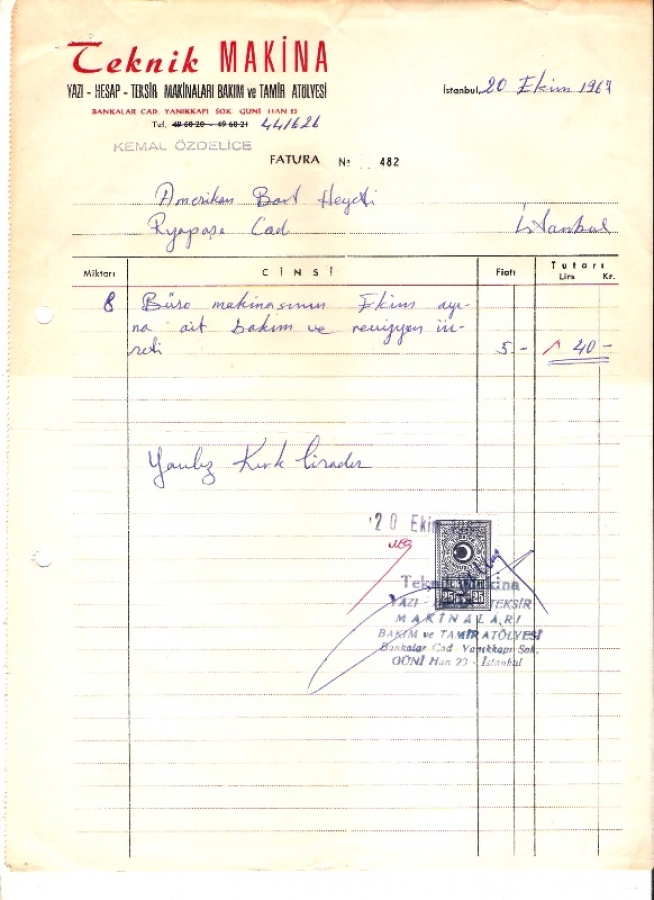 Teknik MAKİNA
YAZI - HESAP - TEKSİR MAKİNALARI BAKIM ve TAMİR ATÖLYESİ
BANKALAR CAD. YANIKKAPI SOK. GÜNİ HAN
Tel. 49 60 20 - 49 60 21 441626
KEMAL ÖZDELİCE
İstanbul, 20 Ekim 1967
FATURA No 482
Amerikan Bort Heyeti
Rızapaşa Cad İstanbul
Miktarı CİNSİ Fiatı Tutarı
Lira Kr.
8 Büro makinasının Ekim ayı-
na ait bakım ve revizyon üc-
reti 5 - 40 -
Yanlız Kırk liradır
20 Ekim
25 25
Teknik Makina
YAZI - TEKSİR
MAKİNALARI
BAKIM ve TAMİR ATÖLYESİ
Bankalar Cad Yanıkkapı Sok.
GÜNİ Han 23 - İstanbul